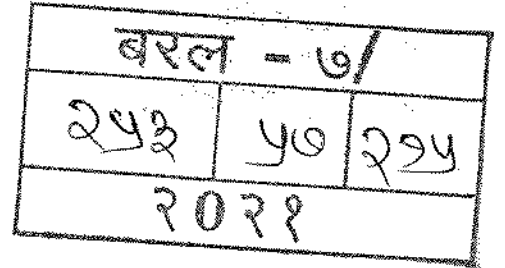 बरल - ७/
२५३ ५७ २१५
२०२१